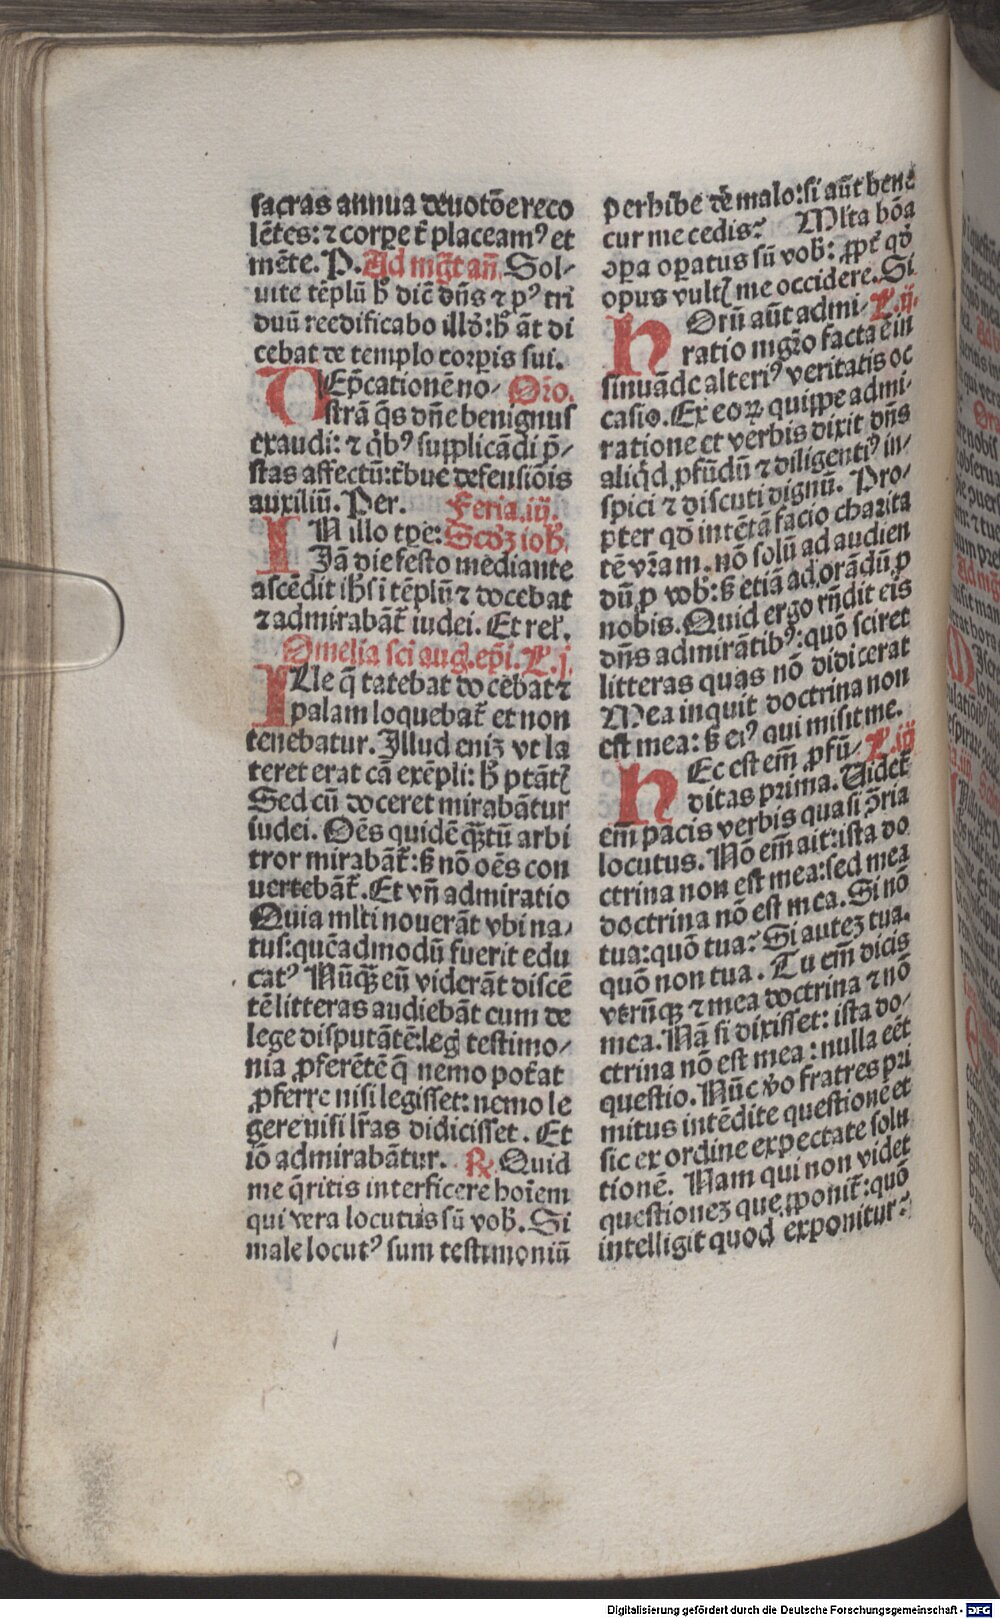 sacras annua deuotõe reco
lẽtes: ⁊ corpe ⁊ placeamꝰ et
mẽte. P. Ad mgt̃ añ. Sol⸗
uite tẽplũ h̕ dic̃ dñs ⁊ pꝰ tri
duũ reedificabo illd̕: h̕ at̃ di
cebat de templo corpis sui.
DEp̃cationẽ no⸗ Oro.
strã q̃s dñe benignus
exaudi: ⁊ qb̕ꝰ supplicãdi p̃⸗
stas affectũ: t̕bue defensiõis
auxiliũ. Per. Feria .iij.
IN illo tpe: Scd̕ꝫ ioh̕.
Jã die festo mediante
ascẽdit ih̕s i tẽplũ ⁊ docebat
⁊ admirabãt̕ iudei. Et rel̕.
Omelia sci aug. ep̃i. L. j.
ILle q̃ latebat docebat ⁊
palam loquebat̕ et non
tenebatur. Illud eniꝫ vt la
teret erat cã exẽpli: h̕ ptãtꝭ
Sed cũ doceret mirabãtur
iudei. Oẽs quidẽ qꝫtũ arbi
tror mirabãt̕: sꝫ nõ oẽs con
uertebãt̕. Et vñ admiratio
Quia ml̕ti nouerãt vbi na⸗
tus: quẽadmodũ fuerit edu
catꝰ Nũqꝫ eũ viderãt discẽ
tẽ litteras audiebãt cum de
lege disputãtẽ: leg̕ testimo⸗
nia ꝓferẽtẽ q̃ nemo pot̕at
ꝓferre nisi legisset: nemo le
gere nisi lr̃as didicisset. Et
iõ admirabãtur. ℞. Quid
me q̃ritis interficere hoĩem
qui vera locutus sũ vob̕. Si
male locutꝰ sum testimoniũ
perhibe de malo: si aut̃ bene
cur me cedis? Ml̕ta bõa
opa opatus sũ vob̕: ꝓpt̕ qd̕
opus vultꝭ me occidere. Si
HOrũ aut̃ admi⸗ L. ij.
ratio mgr̃o facta ẽ in
sinuãde alteriꝰ veritatis oc
casio. Ex eoꝝ quippe admi⸗
ratione et verbis dixit dñs
aliqd̕ ꝓfũdũ ⁊ diligentiꝰ in⸗
spici ⁊ discuti dignũ. Pro⸗
pter qd̕ intẽtã facio charita
tẽ vr̃am. nõ solũ ad audien
dũ ꝓ vob̕: sꝫ etiã ad orãdũ ꝓ
nobis. Quid ergo rñdit eis
dñs admirãtibꝰ: quõ sciret
litteras quas nõ didicerat
Mea inquit doctrina non
est mea: sꝫ eiꝰ qui misit me.
HEc est em̃ ꝓfũ⸗ L. iij
ditas prima. Uidet̕
em̃ pacis verbis quasi ꝯ̃ria
locutus. Nõ em̃ ait: ista do
ctrina non est mea: sed mea
doctrina nõ est mea. Si nõ
tua: quõ tua? Si auteꝫ tua.
quõ non tua. Tu em̃ dicis
vtrũqꝫ ⁊ mea doctrina ⁊ nõ
mea. Nã si dixisset: ista do⸗
ctrina nõ est mea: nulla eẽt
questio. Nũc v̕o fratres pri
mitus intẽdite questionẽ et
sic ex ordine expectate solu
tionẽ. Nam qui non videt
questioneꝫ que ꝓponit̕: quõ
intelligit quod exponitur?
Digitalisierung gefördert durch die Deutsche Forschungsgemeinschaft - DFG